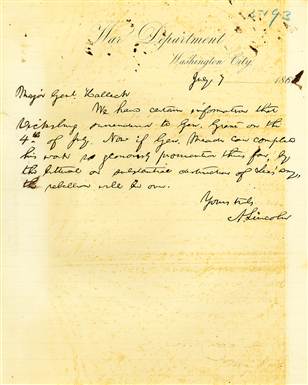 2793
War Department
Washington City,
July 7 186
Major Genl. Halleck
We have certain information that
Vicksburg surrendered to Gen. Grant on the
4th of July. Now if Gen. Meade can complete
his work so gloriously prosecuted thus far, by
the literal or substantial destruction of Lee's army,
the rebellion will be over.
Yours truly
A. Lincoln